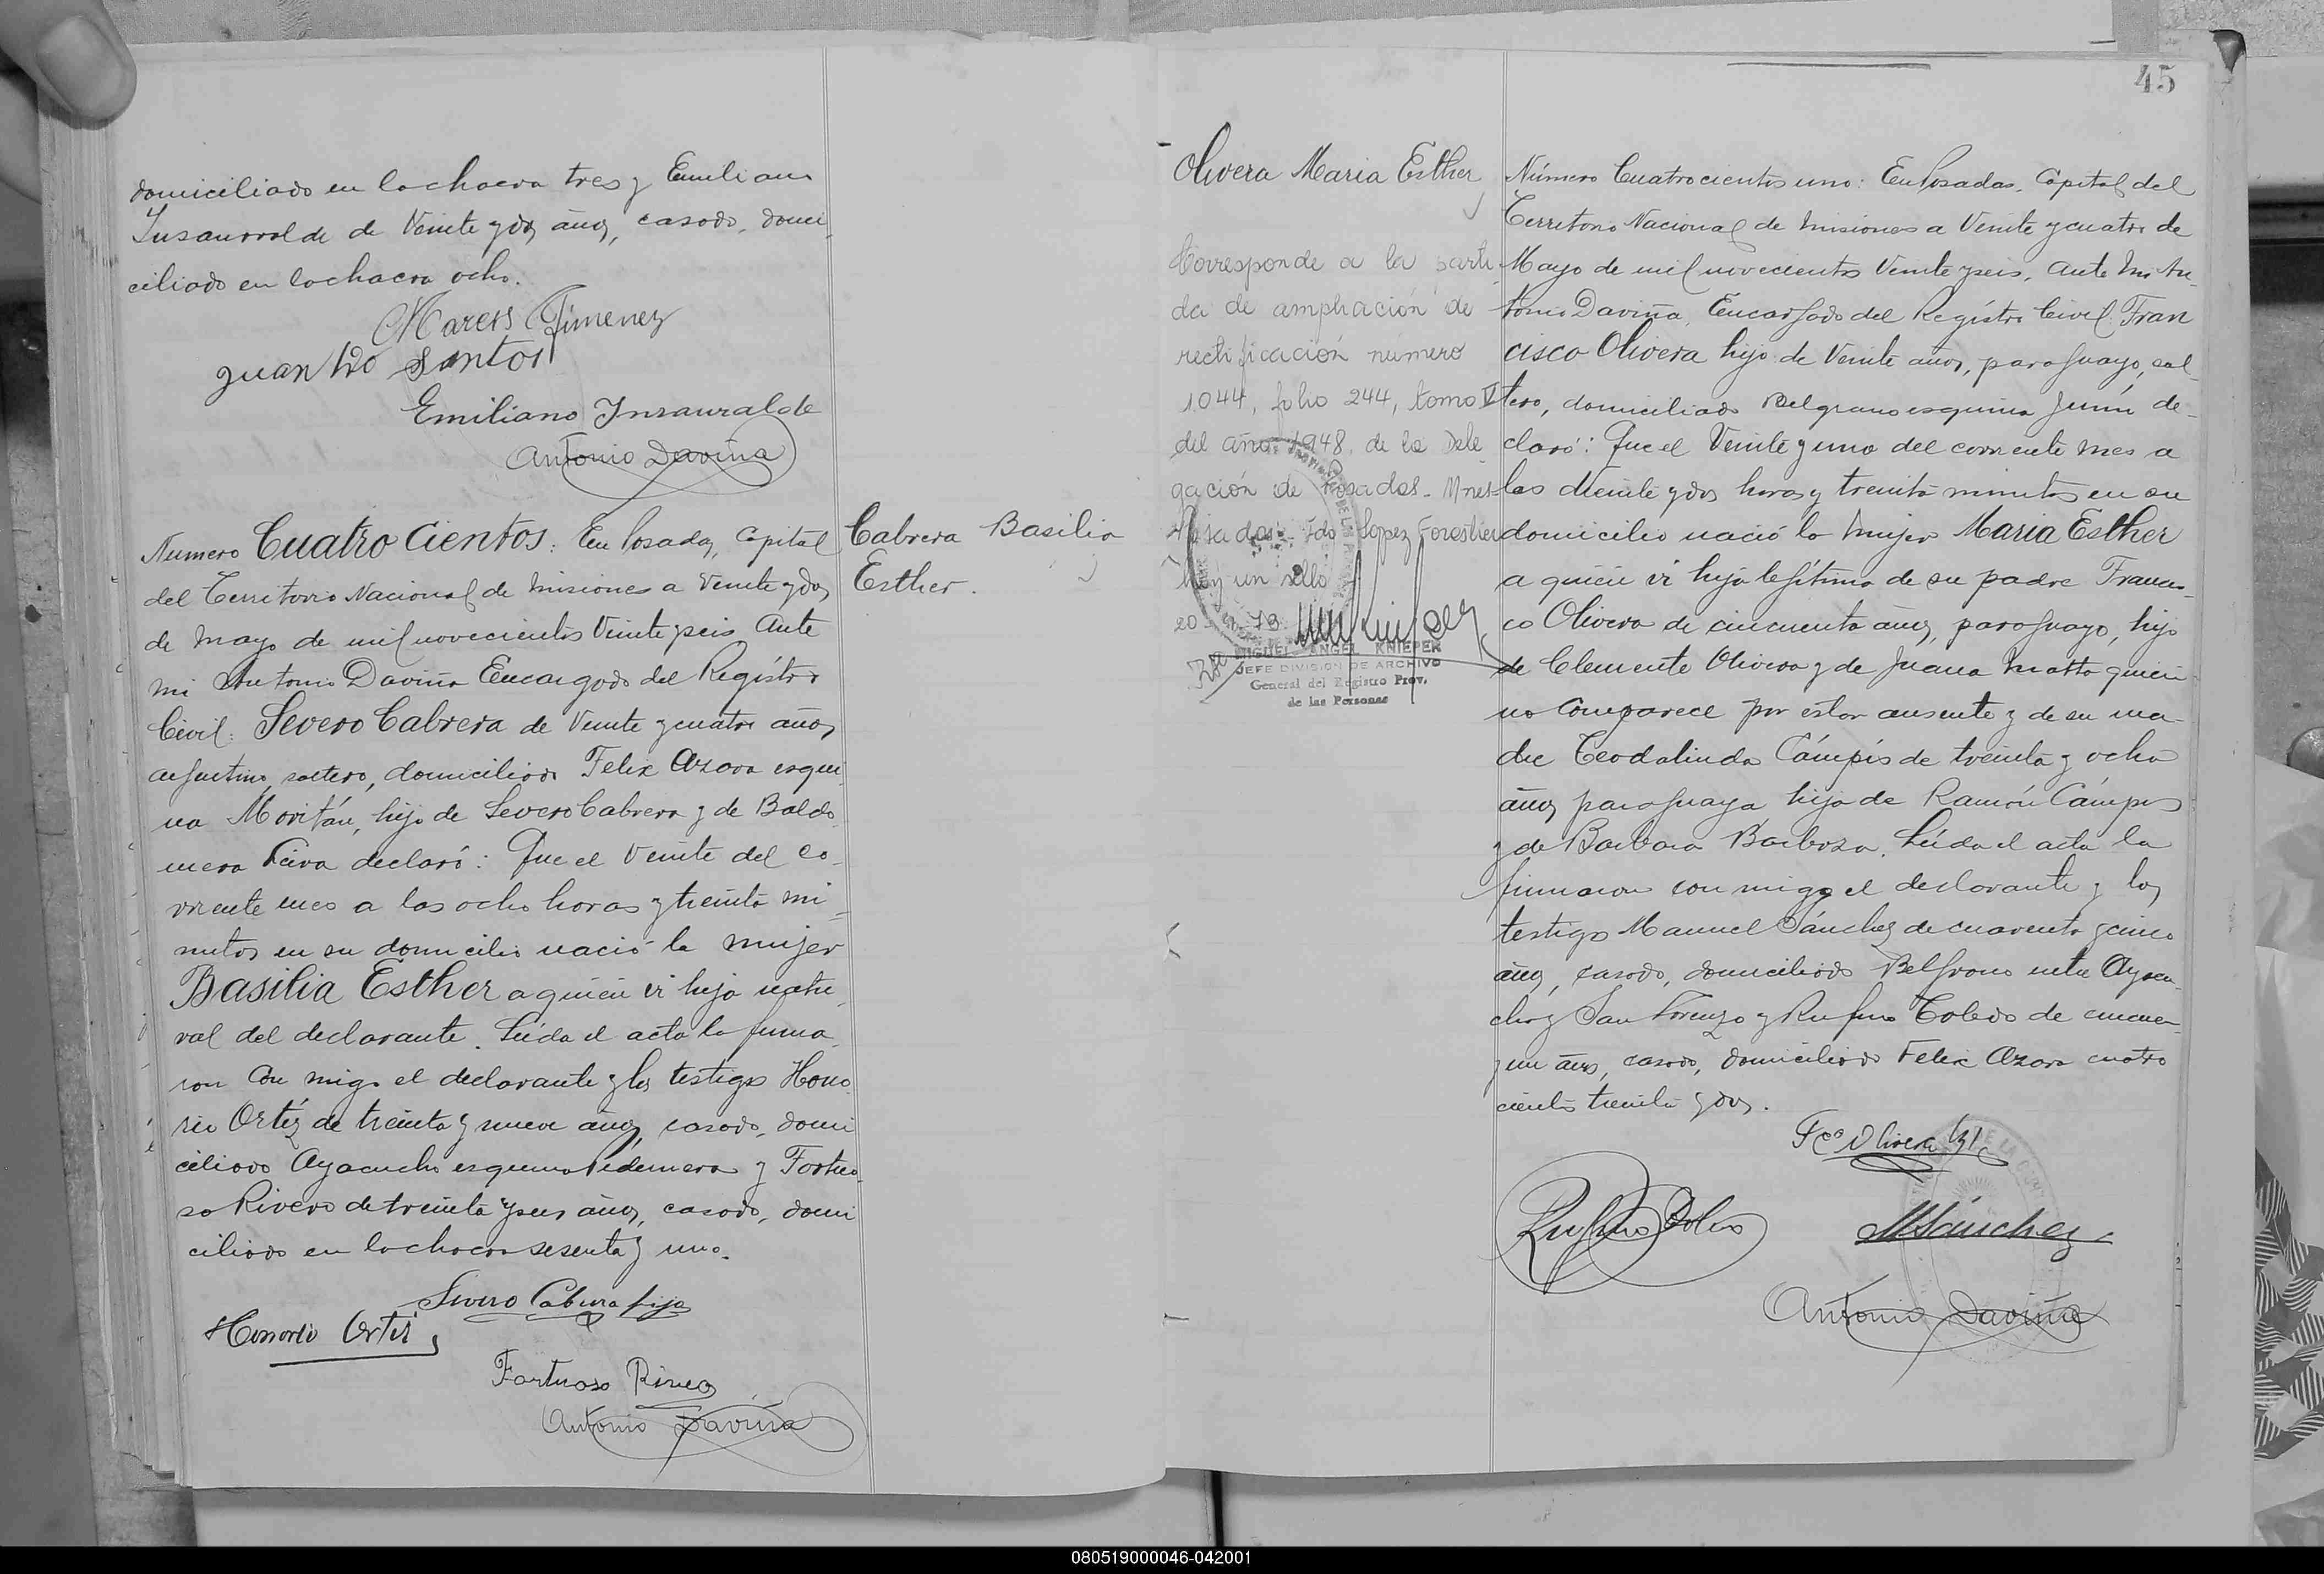 domiciliado en la chacra tres y Emiliano
Insaurralde de Veinte y dos años, casado, domi
ciliado en la chacra ocho.
Marcos Jimenez
Juan Santos
Emiliano Insauralde
Antonio Daviña
Numero Cuatrocientos: En Posadas, Capital
del Territorio Nacional de Misiones a Veinte y dos
de Mayo de mil novecientos Veinte y seis, Ante
mi Antonio Daviña Encargado del Registro
Civil: Severo Cabrera de Veinte y cuatro años,
argentino, soltero, domiciliado Felix Azara esqui
na Moritán, hijo de Severo Cabrera y de Baldo
mera Leiva declaró: Que el Veinte del co-
rriente mes a las ocho horas y treinta mi-
nutos en su domicilio nació la mujer
Basilia Esther a quien vi hija natu
ral del declarante. Leida el acta la firma
ron con migo el declarante y los testigos Hono
rio Ortíz de treinta y nueve años, casado, domi
ciliado Ayacucho esquina Pedernera y Fortuo
so Rivero de treinta y seis años, casado, domi
ciliado en la chacra sesenta y uno.
Severo Cabrera hijo
Honorio Ortiz
Fortuoso Rivero
Antonio Daviña
Cabrera Basilia
Esther.
45
Olivera Maria Esther
Corresponde a la parti
da de ampliación de
rectificación numero
1044, folio 244, tomo V
del año 1948, de la Dele
gación de Posadas - Mnes-
Posadas - Fdo Lopez Forestier
hay un sello
20
MIGUEL ANGEL KNIEPER
JEFE DIVISION DE ARCHIVO
General del Registro Prov.
de las Personas
Número Cuatrocientos uno: En Posadas, Capital del
Territorio Nacional de Misiones a Veinte y cuatro de
Mayo de mil novecientos Veinte y seis, ante mi An-
tonio Daviña, Encargado del Registro Civil: Fran
cisco Olivera hijo de Veinte años, paraguayo, sol-
tero, domiciliado Belgrano esquina Junín de-
claró: Que el Veinte y uno del corriente mes a
las diecinte y dos horas y treinta minutos en su
domicilio nació la mujer Maria Esther
a quien vi hija legítima de su padre Francis-
co Olivera de cincuenta años, paraguayo, hijo
de Clemente Olivera y de Juana Matto quien
no comparece por estar ausente y de su ma-
dre Teodalinda Cámpis de treinta y ocho
años paraguaya hija de Ramón Cámpos
y de Barbara Barboza. Leida el acta la
firmaron con migo el declarante y los
testigos Manuel Sánchez de cuarenta y cinco
años, casado, domiciliado Belgrano entre Ayacu-
cho y San Lorenzo y Rufino Toledo de cincuen-
y un años, casado, domiciliado Felix Azara cuatro
cientos treinta y dos.
Fco Olivera hijo
Rufino Toledo
MSánchez
Antonio Daviña
080519000046-042001